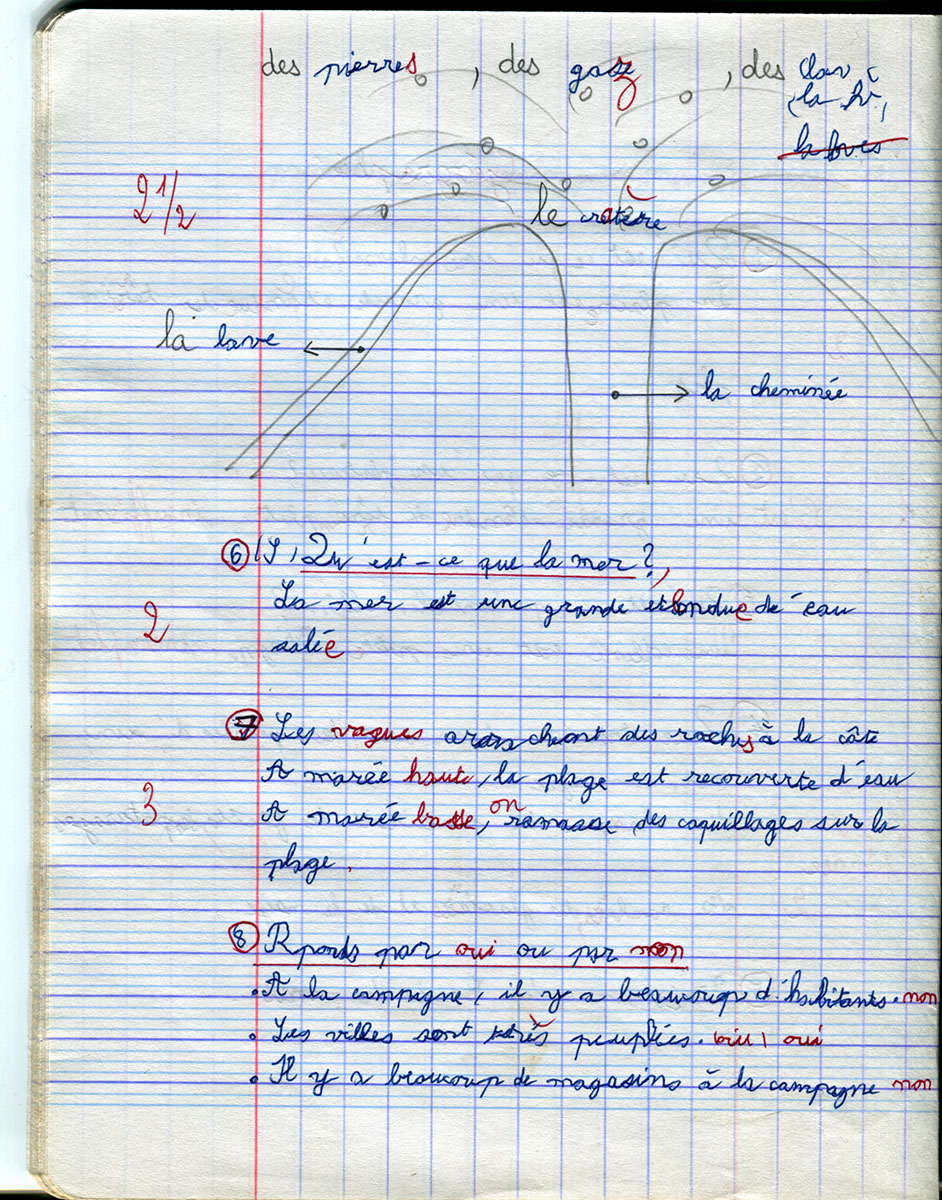 des pierres, des gaz, des
le cratère
2 1/2
la lave
la cheminée
6 Qu'est-ce que la mer?
La mer est une grande étendue d'eau
2
salée
7 Les vagues arrachent des roches à la côte
A marée haute, la plage est recouverte d'eau
3
A marée basse, on ramasse des coquillages sur la
plage.
8 Rponds par oui ou par non
. A la campagne, il y a beaucoup d'habitants. non
. Les villes sont très peuplées. oui
. Il y a beaucoup de magasins à la campagne non